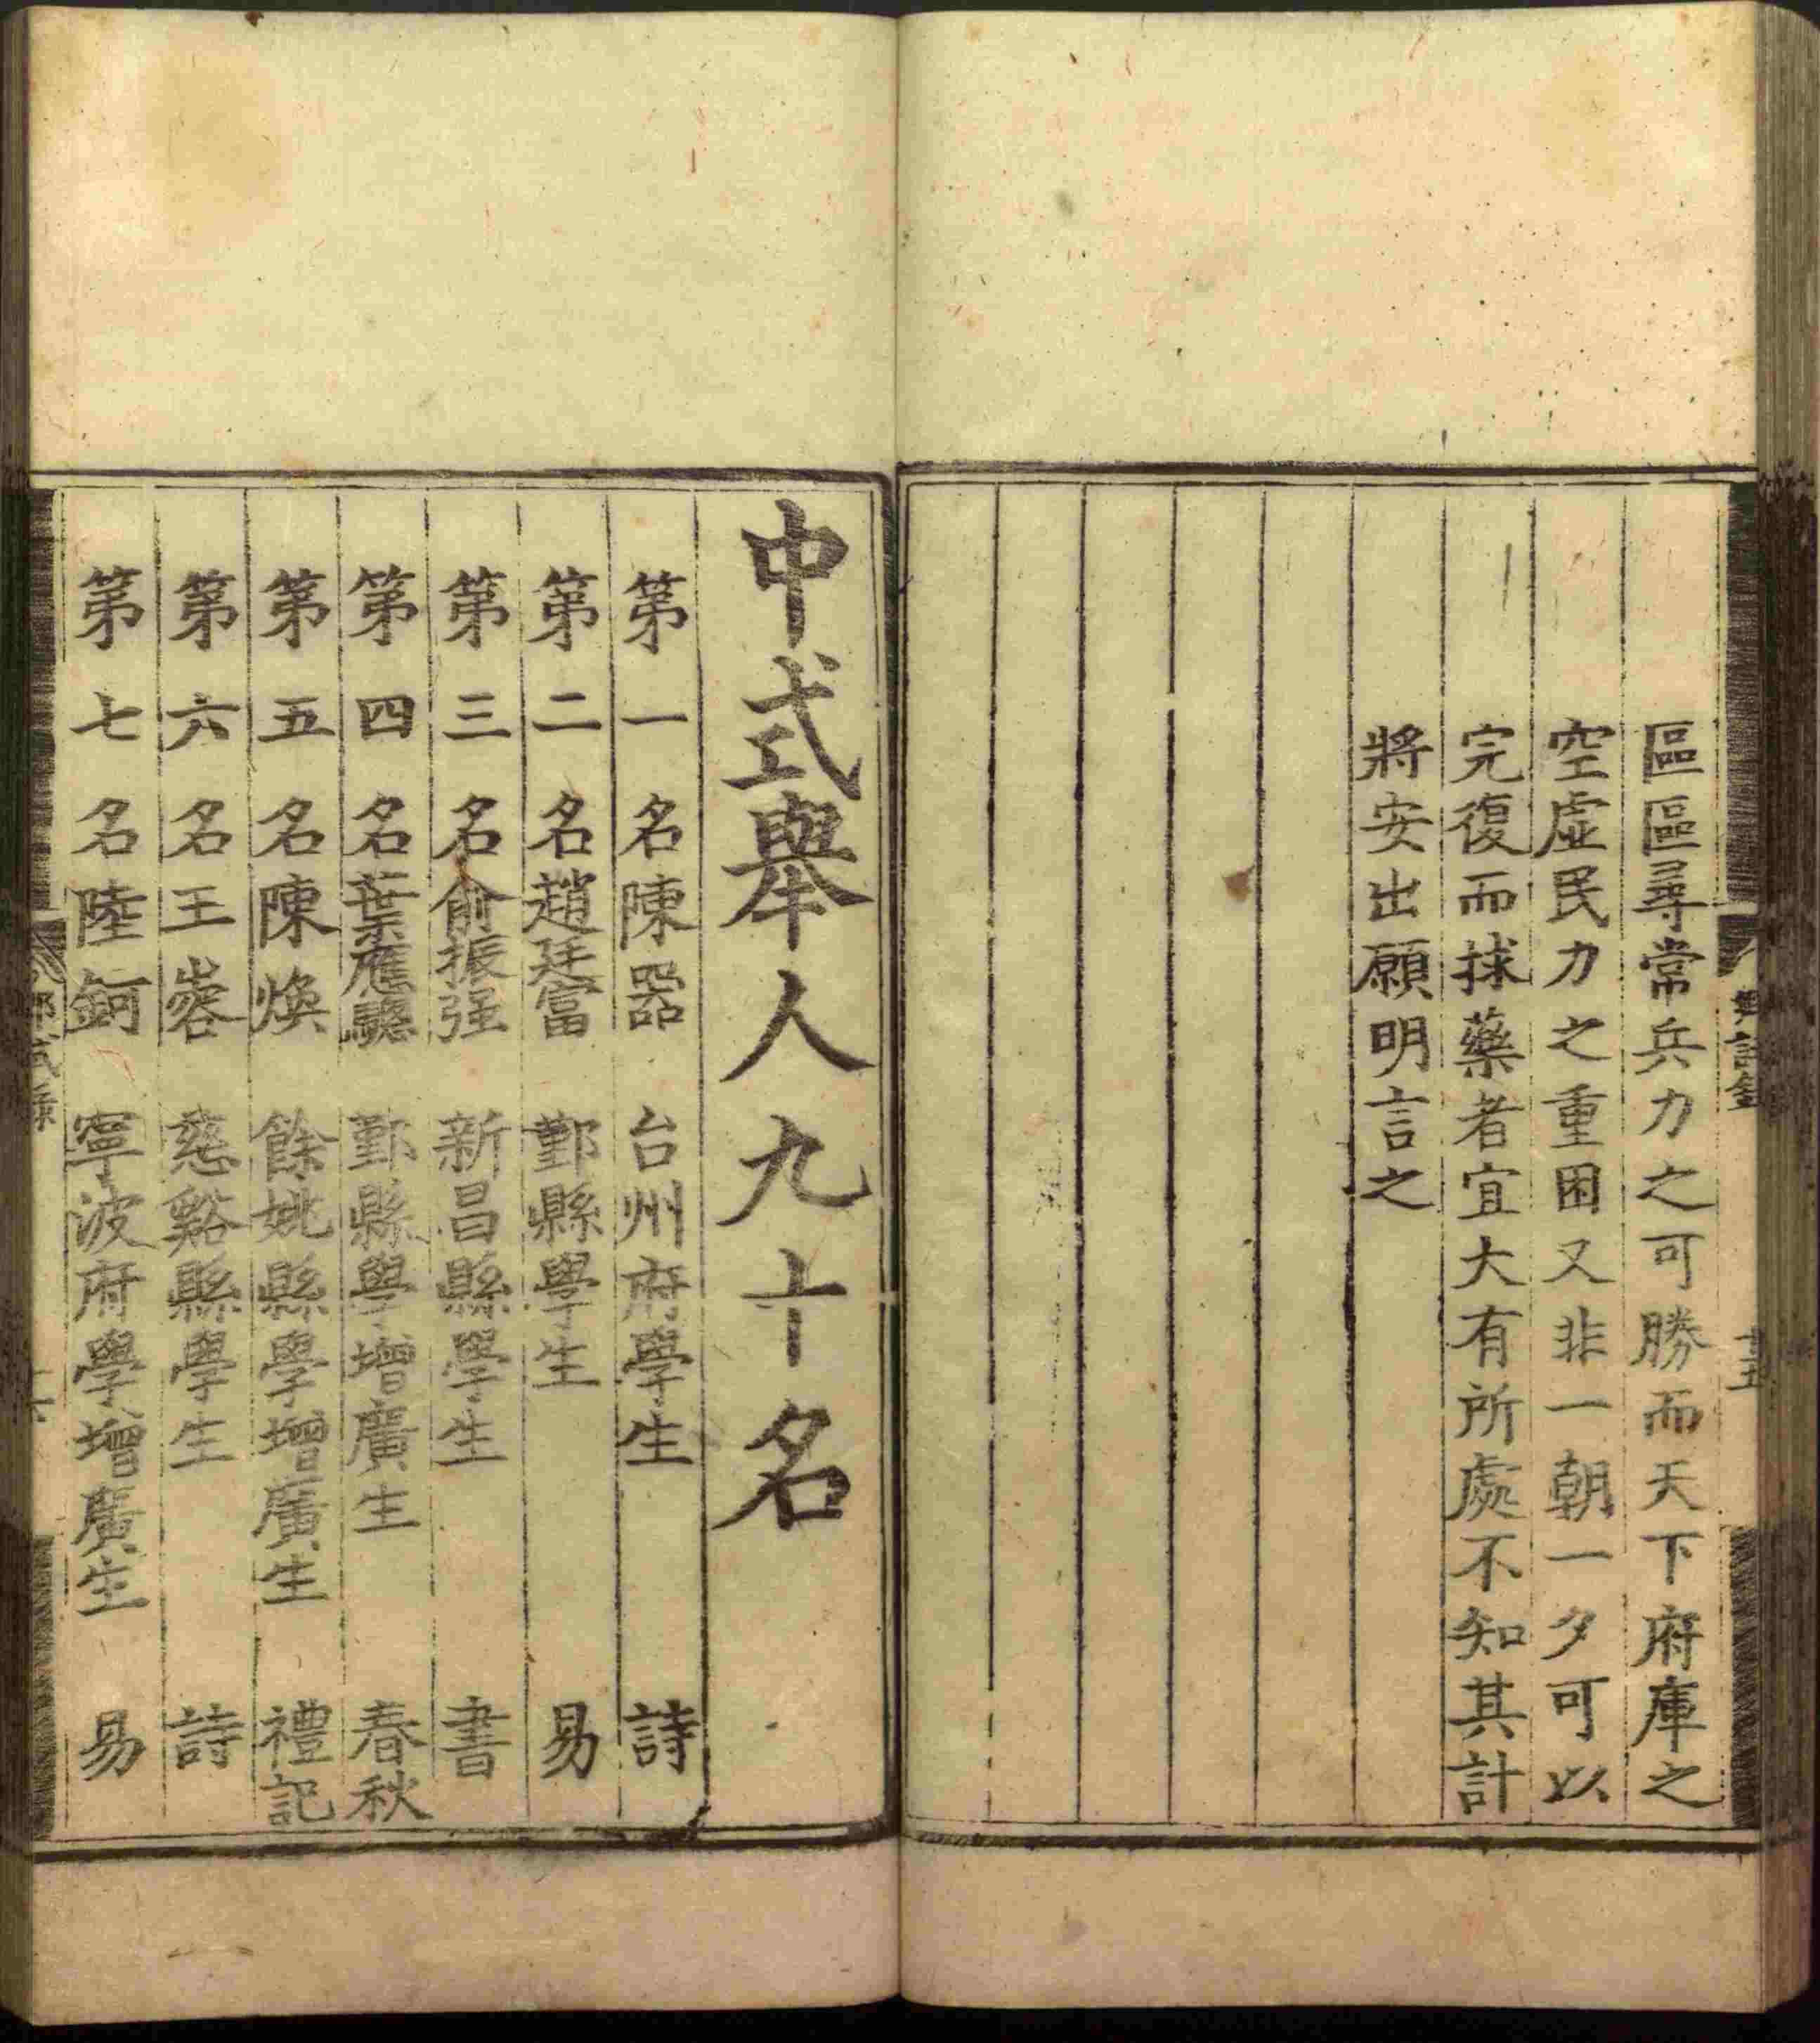 區區尋常兵力之可勝而天下府庫之
空虛民力之重困又非一朝一夕可以
完復而捄藥者宜大有所處不知其計
將安出願明言之
中式舉人九十名
第一名陳器 台州府學生 詩
第二名趙廷富 鄞縣學生 易
第三名俞振強 新昌縣學生 書
第四名葉應驄 鄞縣學增廣生 春秋
第五名陳煥 餘姚縣學增廣生 禮記
第六名王 慈谿縣學生 詩
第七名陸鈳 寧波府學增廣生 易